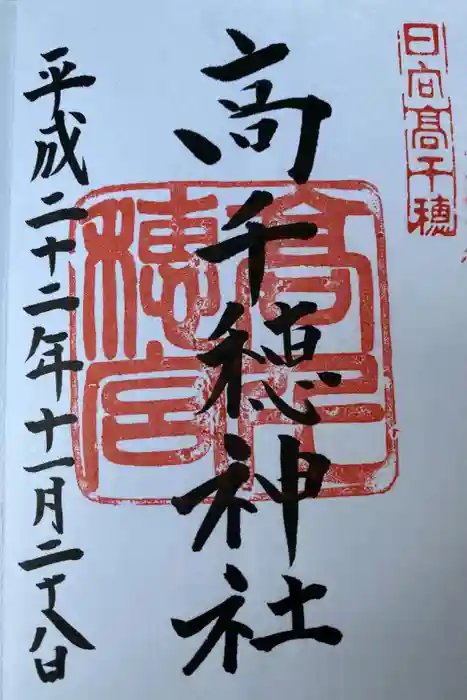 日向髙千穂
高千穂神社
高千
穂宮
平成二十二年十一月二十八日